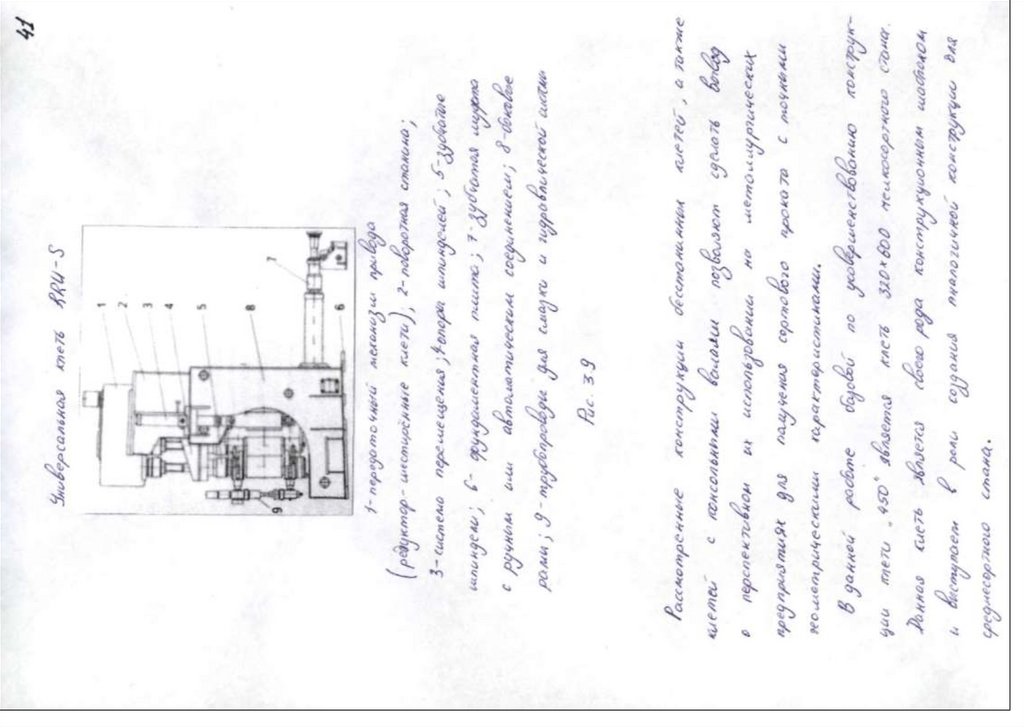 41
Универсальная клеть RRU-S
1
2
3
4
5
8
7
6
9
1-передаточный механизм привода
(редуктор-шестерённые клети); 2-поворотная станина;
3-система перемещения; 4-опора шпинделей; 5-зубчатые
шпиндели; 6-фундаментная плита; 7-зубчатая муфта
с ручным или автоматическим соединением; 8-боковые
рамы; 9-трубопроводы для смазки и гидравлической
Рис. 3.9
Рассмотренные конструкции бестанинных клетей, а также
клетей с консольными валками позволяют сделать вывод
о перспективном их использовании на металлургических
предприятиях для получения сортового проката с точными
геометрическими характеристиками.
В данной работе базовой по усовершенствованию конструк-
ции клети „450" является клеть 320×600 мелкосортного стана.
Данная клеть является своего рода конструкционным шаблоном
и выступает в роли создания аналогичной конструкции для
среднесортного стана.